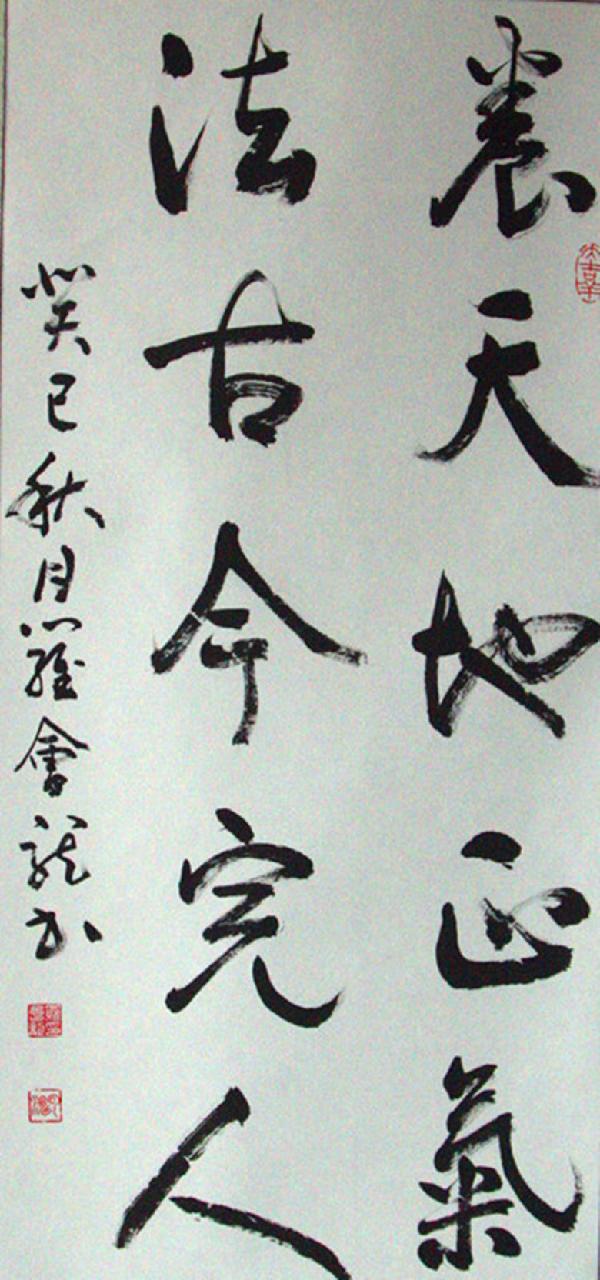 養天地正氣
法古今完人
癸巳秋月羅會龍書